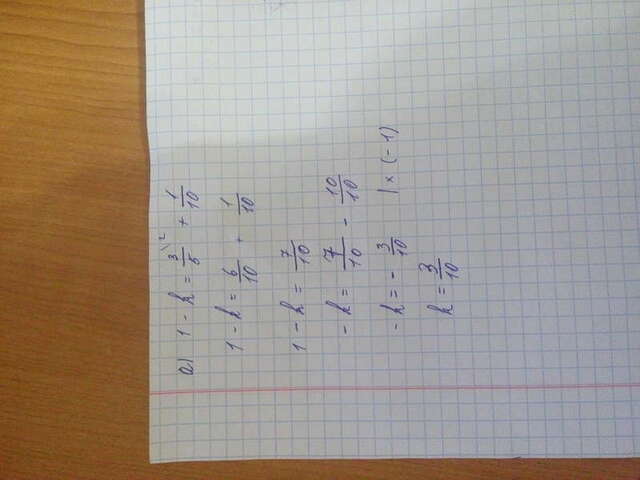 a) 1 - k = 3/5 \2 + 1/10
1 - k = 6/10 + 1/10
1 - k = 7/10
- k = 7/10 - 10/10
- k = - 3/10 | × (- 1)
k = 3/10